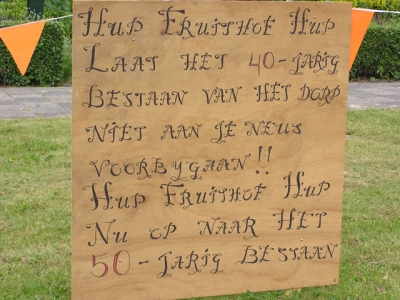 Hup Fruithof Hup
Laat het 40-jarig
Bestaan van het dorp
niet aan je neus
voorbygaan!!
Hup Fruithof Hup
Nu op naar Het
50-jarig Bestaan